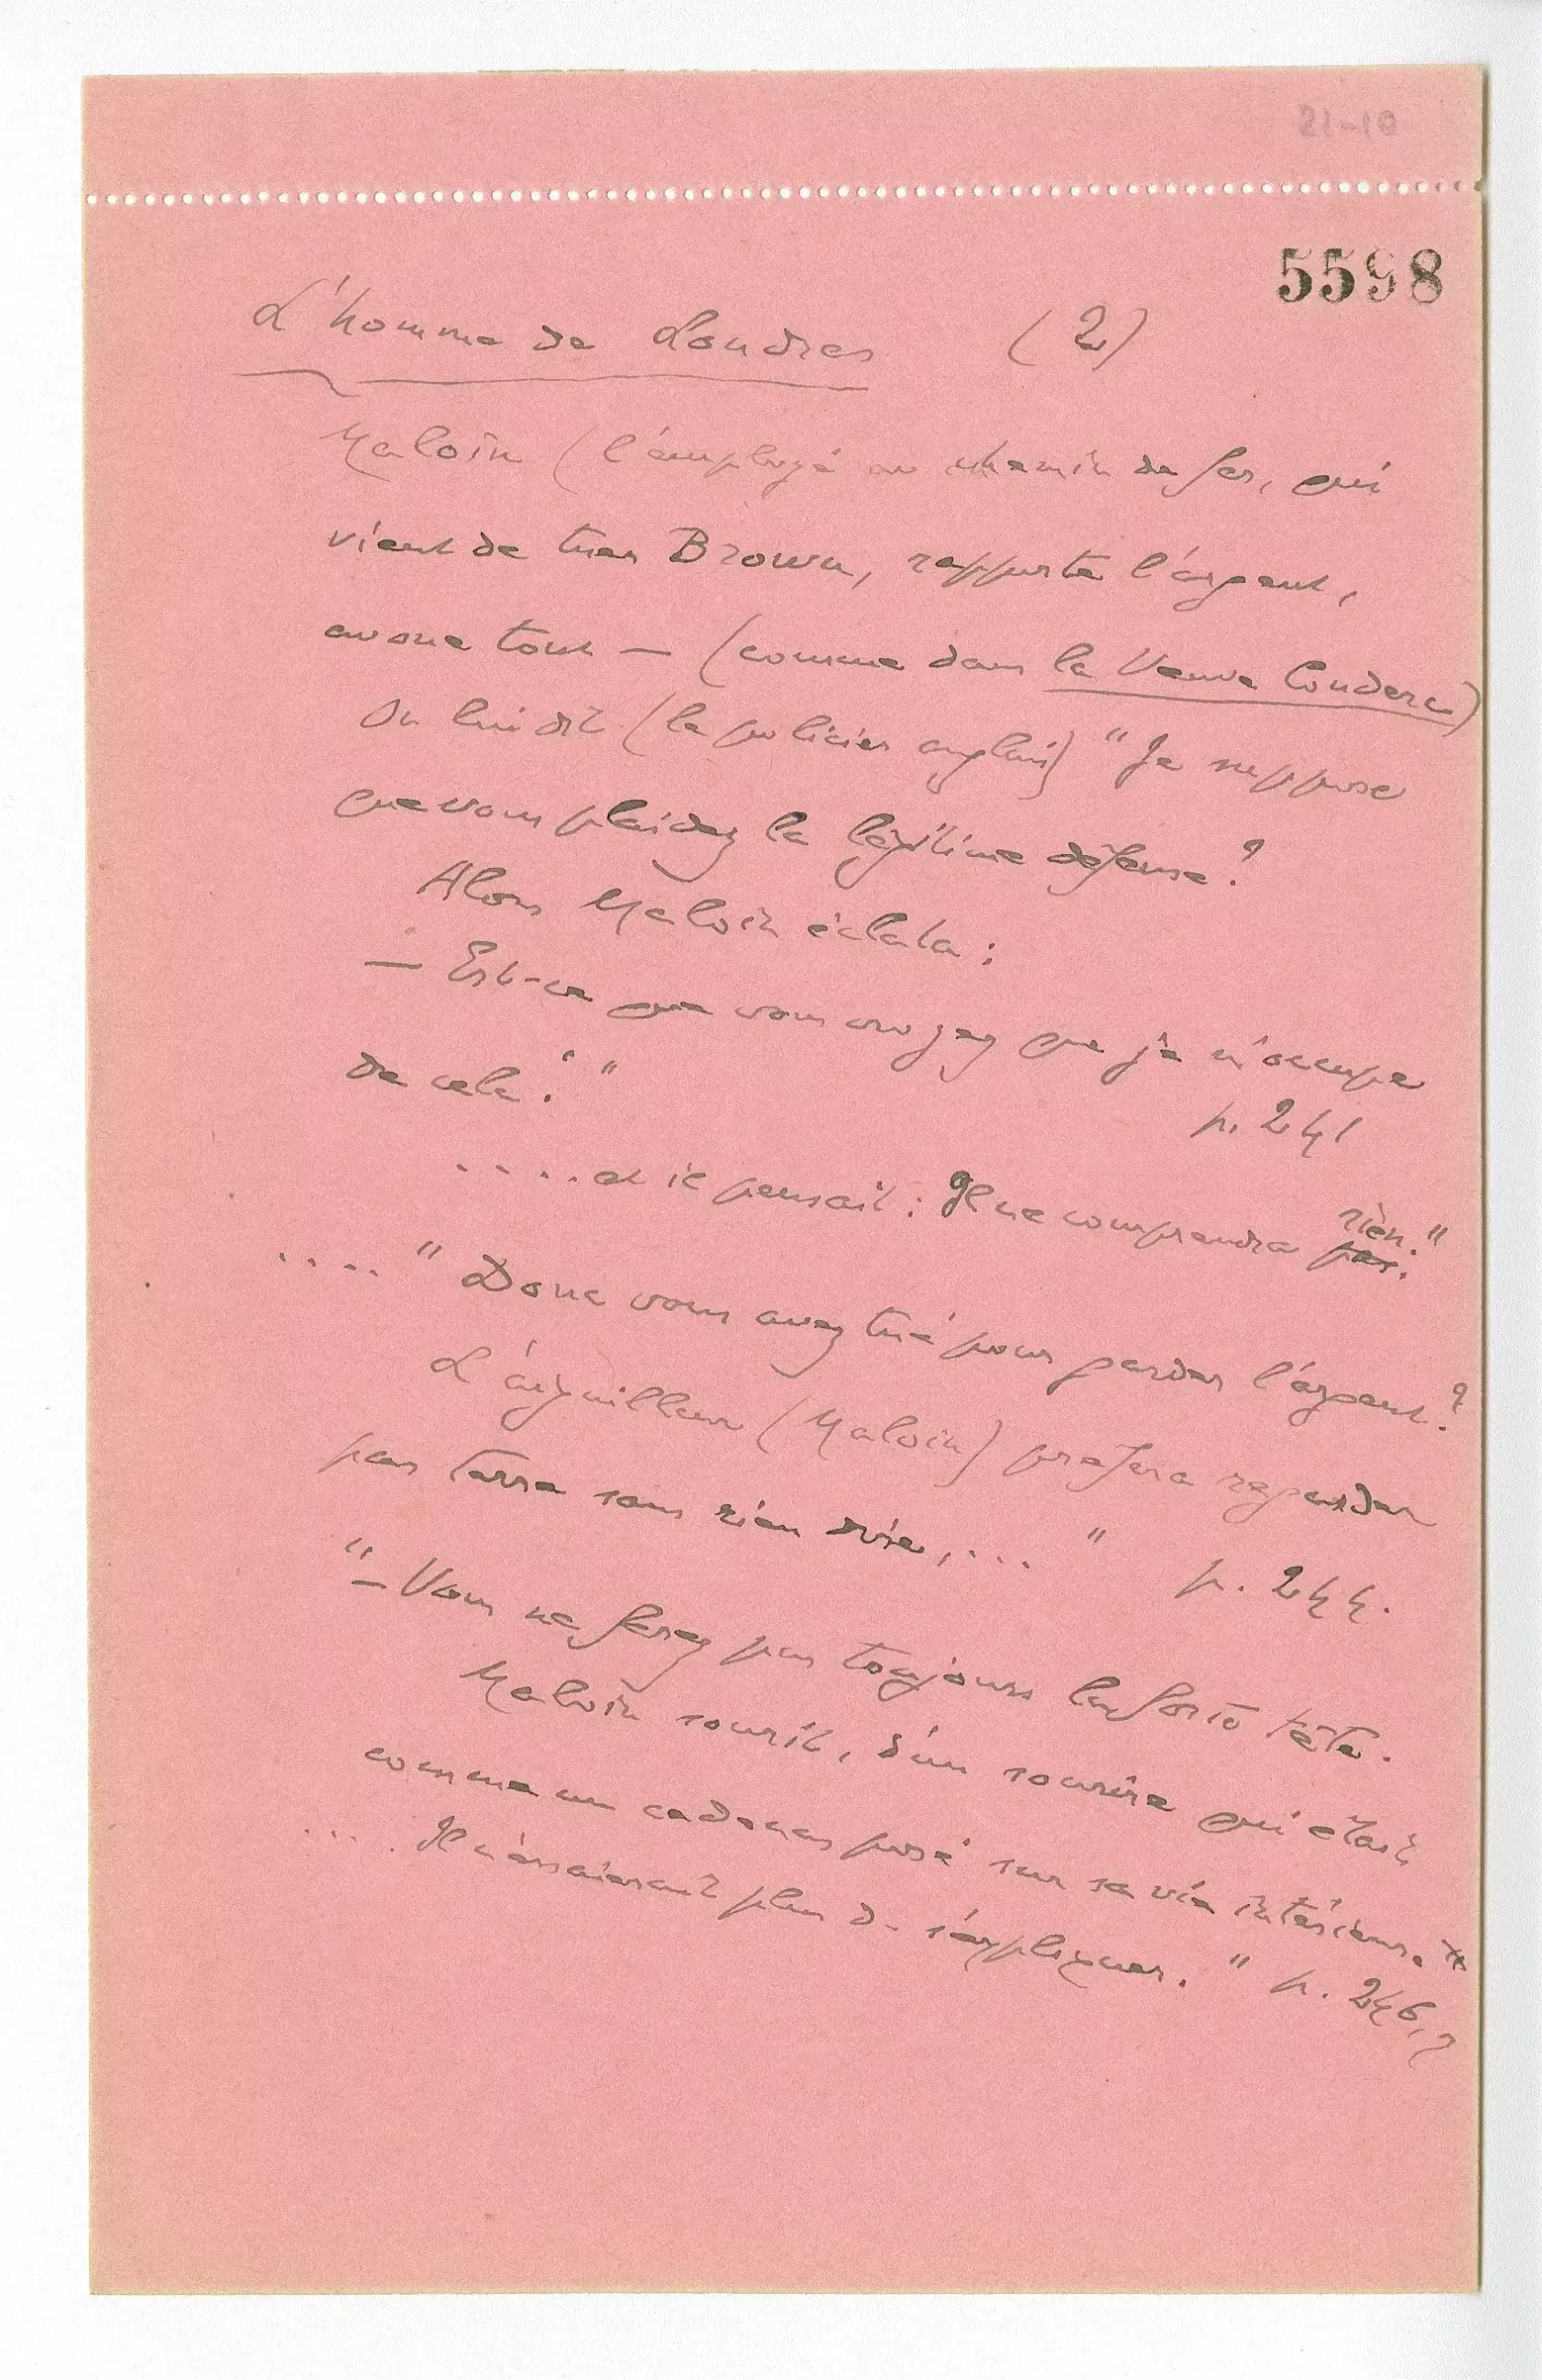 21-10
5598
L'homme de Londres (2)
Maloin (l'employé au chemin de fer, qui
vient de tuer Brown, rapporte l'argent,
avoue tout — (comme dans la Veuve Couderc)
On lui dit (le policier anglais) " Je suppose
que vous plaidez la légitime défense ?
Alors Maloin éclata :
— Est-ce que vous croyez que je m'occupe
de cela ! "
p. 241
.... et il pensait : Il ne comprendra pas. rien. "
.... " Donc vous avez tué pour garder l'argent ?
L'aiguilleur (Maloin) préféra regarder
par terre sans rien dire, ... " p. 244.
" — Vous ne ferez pas toujours la forte tête.
Maloin sourit, d'un sourire qui était
comme un cadenas posé sur sa vie intérieure. *
.... Il n'essaierait plus de s'expliquer. " p. 246,7